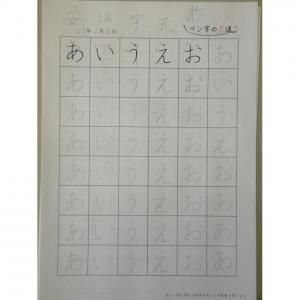 安 以 宇 衣 於
ペン字の
あ い う え お あ
あ い う え お い
あ い う え お う
あ い う え お え
あ い う え お お
あ い う え お
あ い う え お
あ い う え お あ